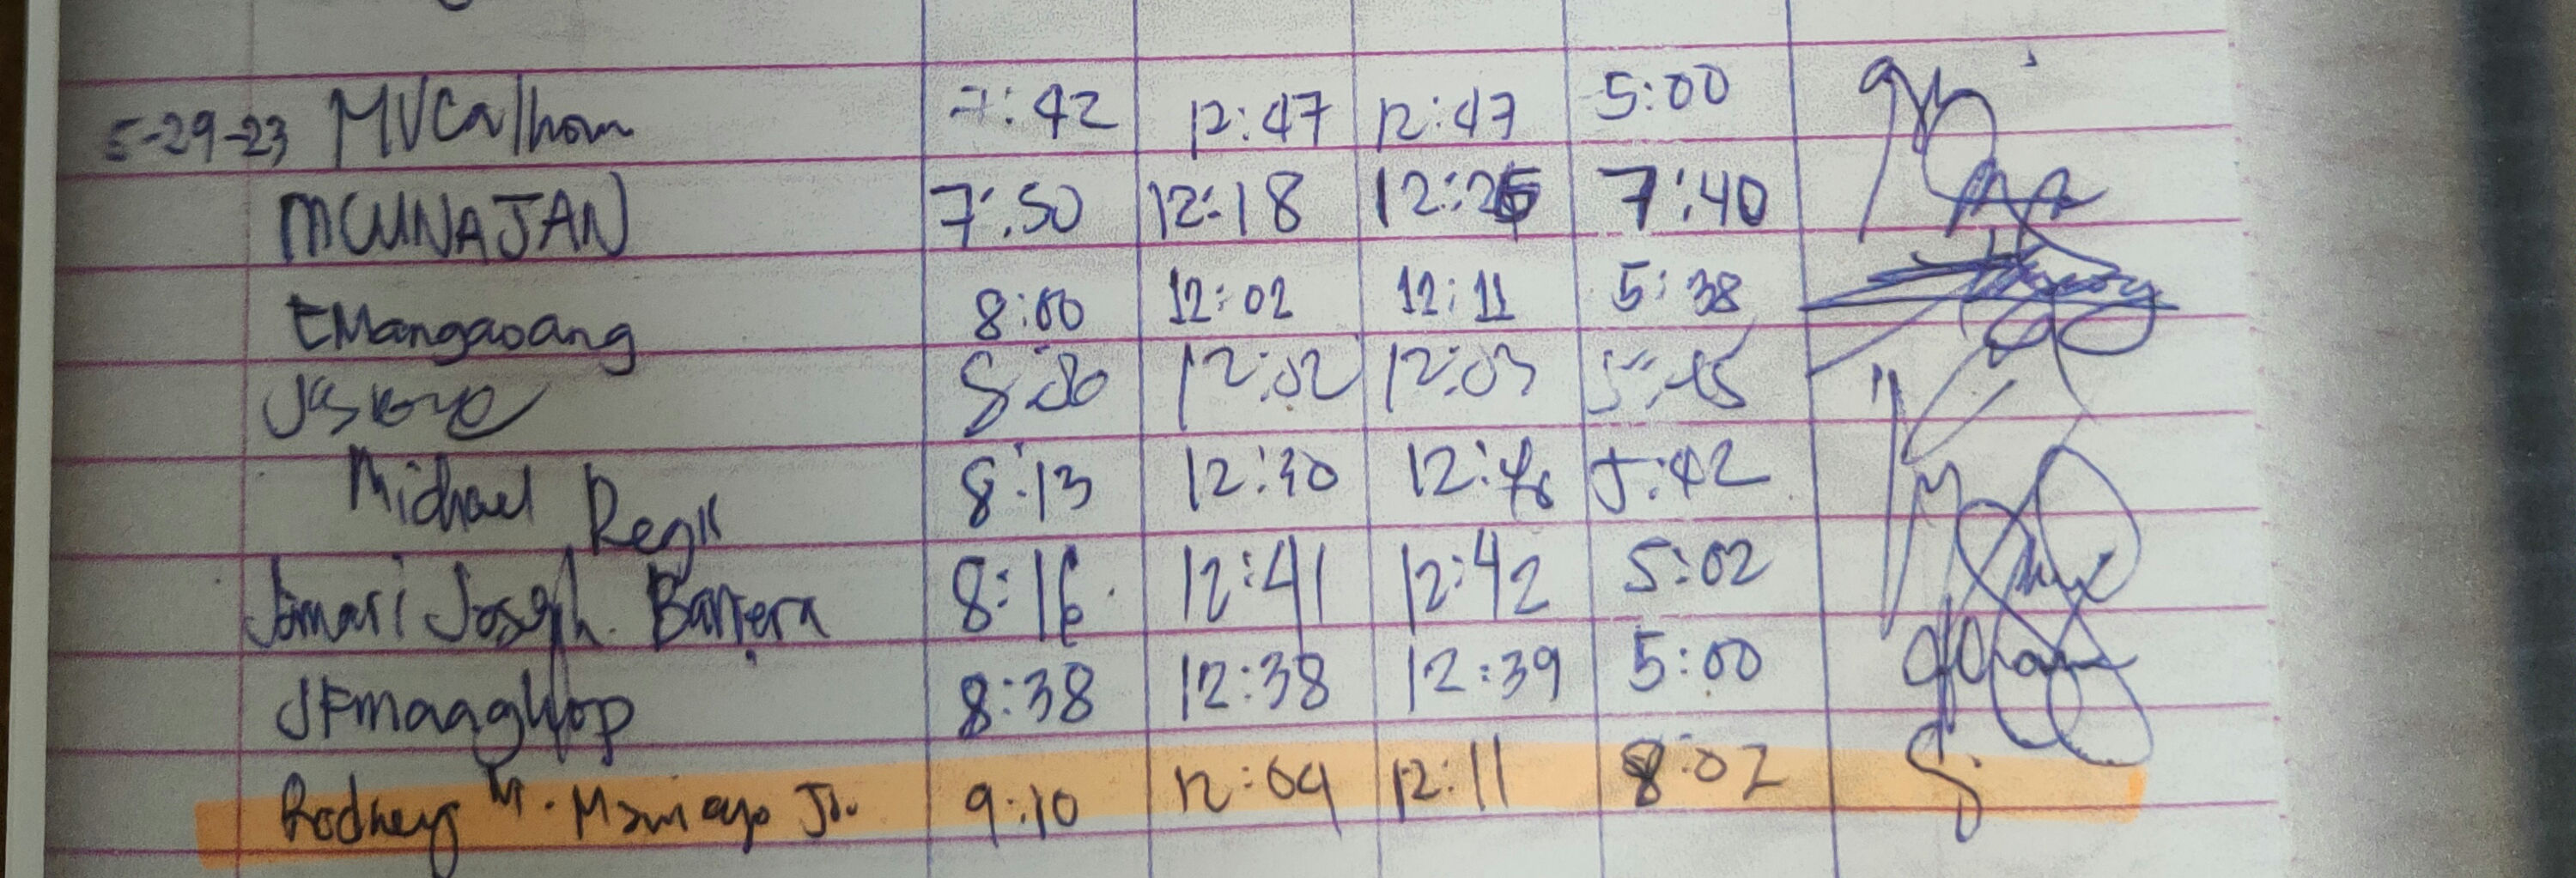 5-29-23 MVCalhom 7:42 12:47 12:47 5:00
MCUNAJAN 7:50 12:18 12:25 7:40
EMangaoang 8:00 12:02 12:11 5:38
8:00 12:02 12:03
Michael Regis 8:13 12:30 5:42
Jomari Joseph Barrera 8:16 12:41 12:42 5:02
JFmaaghop 8:38 12:38 12:39 5:00
Rodney M. Jr. 9:10 12:09 12:11 8:02